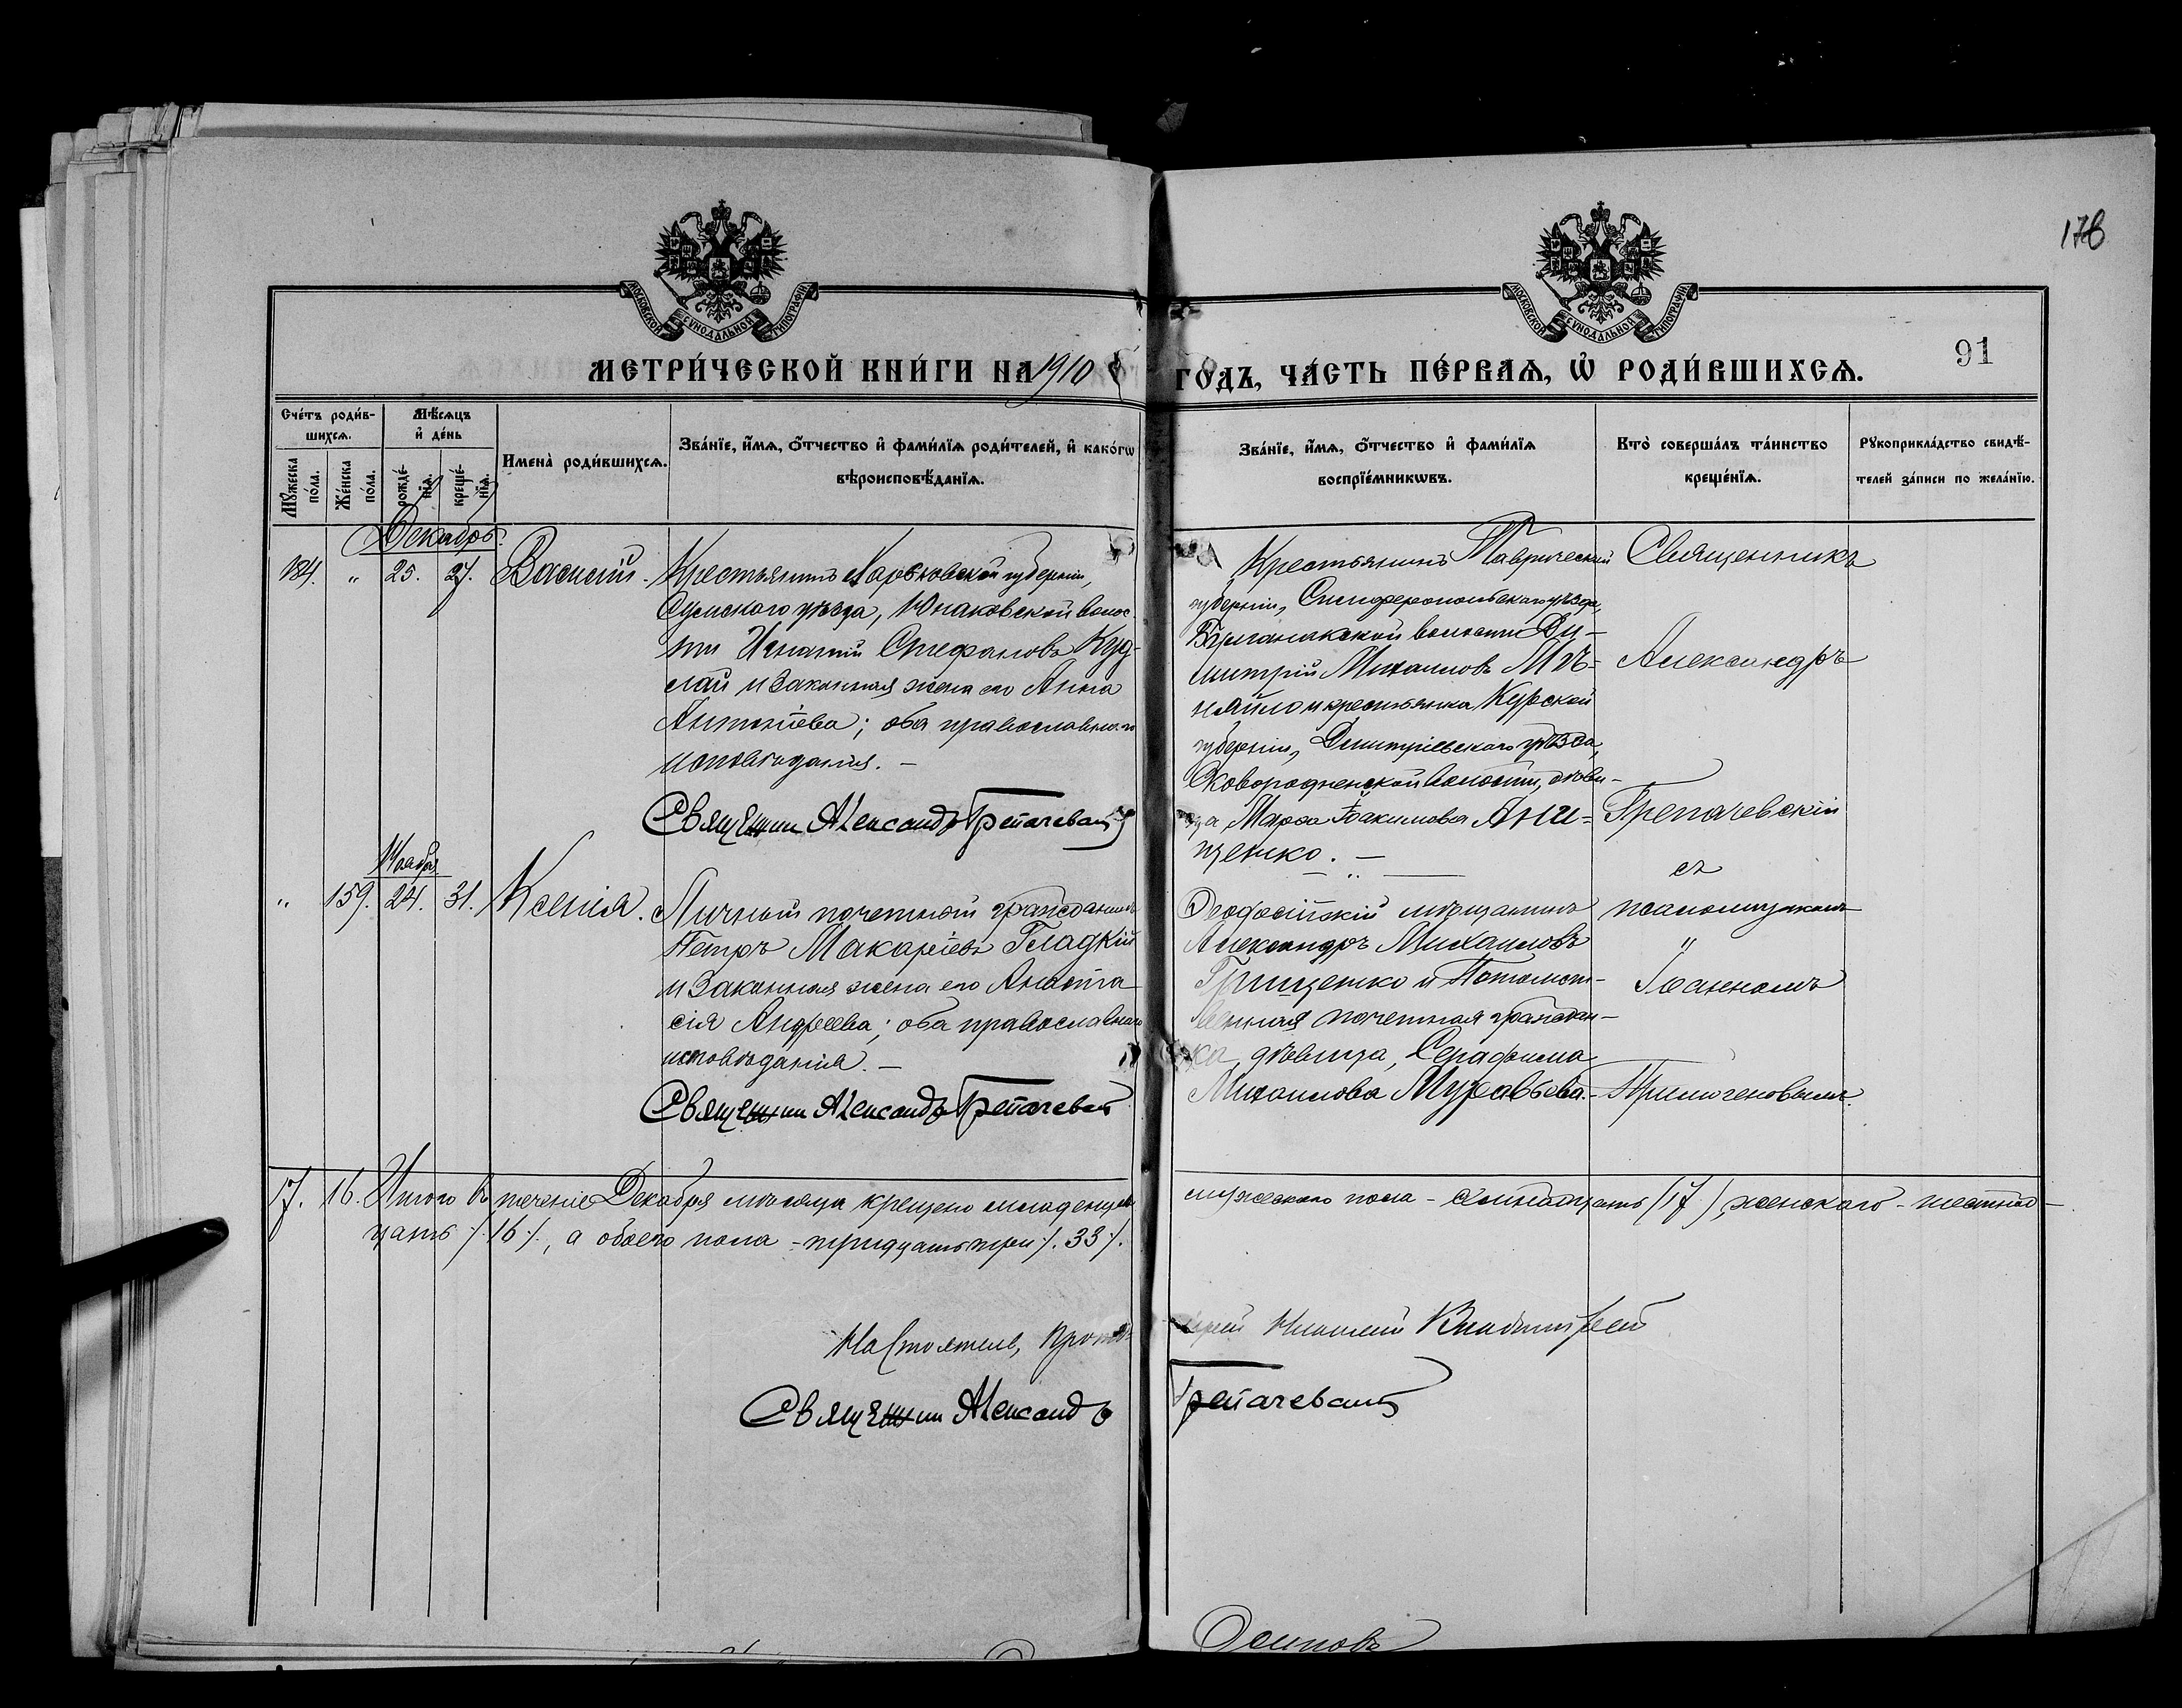 176
91
МОСКОВСКОЙ СѴНОДАЛЬНОЙ ТИПОГРАФІИ
МОСКОВСКОЙ СѴНОДАЛЬНОЙ ТИПОГРАФІИ
МЕТРИ́ЧЕСКОЙ КНИ́ГИ НА 1910 ГО́ДЪ, ЧА́СТЬ ПЕ́РВАѦ, Ѡ҆ РОДИ́ВШИХСѦ.
Сче́тъ роди́в-
шихсѧ.
Мѣ́сѧцъ
и҆ де́нь
Мꙋ́жеска
по́ла.
Же́нска
по́ла.
рожде́-
нїѧ.
креще́-
нїѧ.
Имена̀ роди́вшихсѧ.
Зва́нїе, и҆́мѧ, ѻ҆́тчество и҆ фами́лїѧ роди́телей, и҆ како́гѡ
вѣроисповѣ́данїѧ.
Зва́нїе, и҆́мѧ, ѻ҆́тчество и҆ фами́лїѧ
воспрїе́мникѡвъ.
Кто̀ соверша́лъ та́инство
креще́нїѧ.
Рꙋкоприкла́дство свидѣ́-
телей за́писи по жела́нїю.
Декабрь.
184. " 25. 27. Василій.
Крестьянинъ Харьковской губерніи,
Сумскаго уѣзда, Юнаковской волос-
ти Игнатій Стефановъ Куд-
лай и законная жена его Анна
Антоніева; оба православнаго
исповѣданія. –
Священникъ Александръ Трепачевскій
Крестьянинъ Таврической
губерніи, Симферопольскаго уѣзда,
Булганакской волости Ди-
митрій Михаиловъ Мъ-
няйло и крестьянка Курской
губерніи, Димитріевскаго уѣзда,
Сковородненской волости, дѣви-
ца Марѳа Іоакимова Они-
щенко. –
Священникъ
Александръ
Трепачевскій
съ
псаломщикомъ
"
Іоанномъ
Примогеновымъ.
Ноябрь.
" 159. 24. 31. Ксенія.
Личный почетный гражданинъ
Петръ Макаріевъ Гладкій
и законная жена его Анаста-
сія Андреева; оба православнаго
исповѣданія. –
Священникъ Александръ Трепачевскій
Ѳеодосійскій мѣщанинъ
Александръ Михаиловъ
Грищенко и Потомст-
венная почетная граждан-
ка, дѣвица, Серафима
Михаилова Муравьева.
17. 16. Итого въ теченіе Декабря мѣсяца крещено младенцевъ мужескаго пола – семнадцать (17), женскаго – шестнад-
цать /.16/., а обоего пола – тридцать три /.33/.
Настоятель, Протоіерей
Священникъ Александръ Трепачевскій
Осиповъ